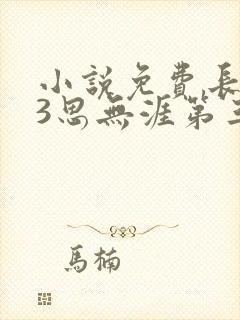 小說免費長
3思無涯第三
馬楠